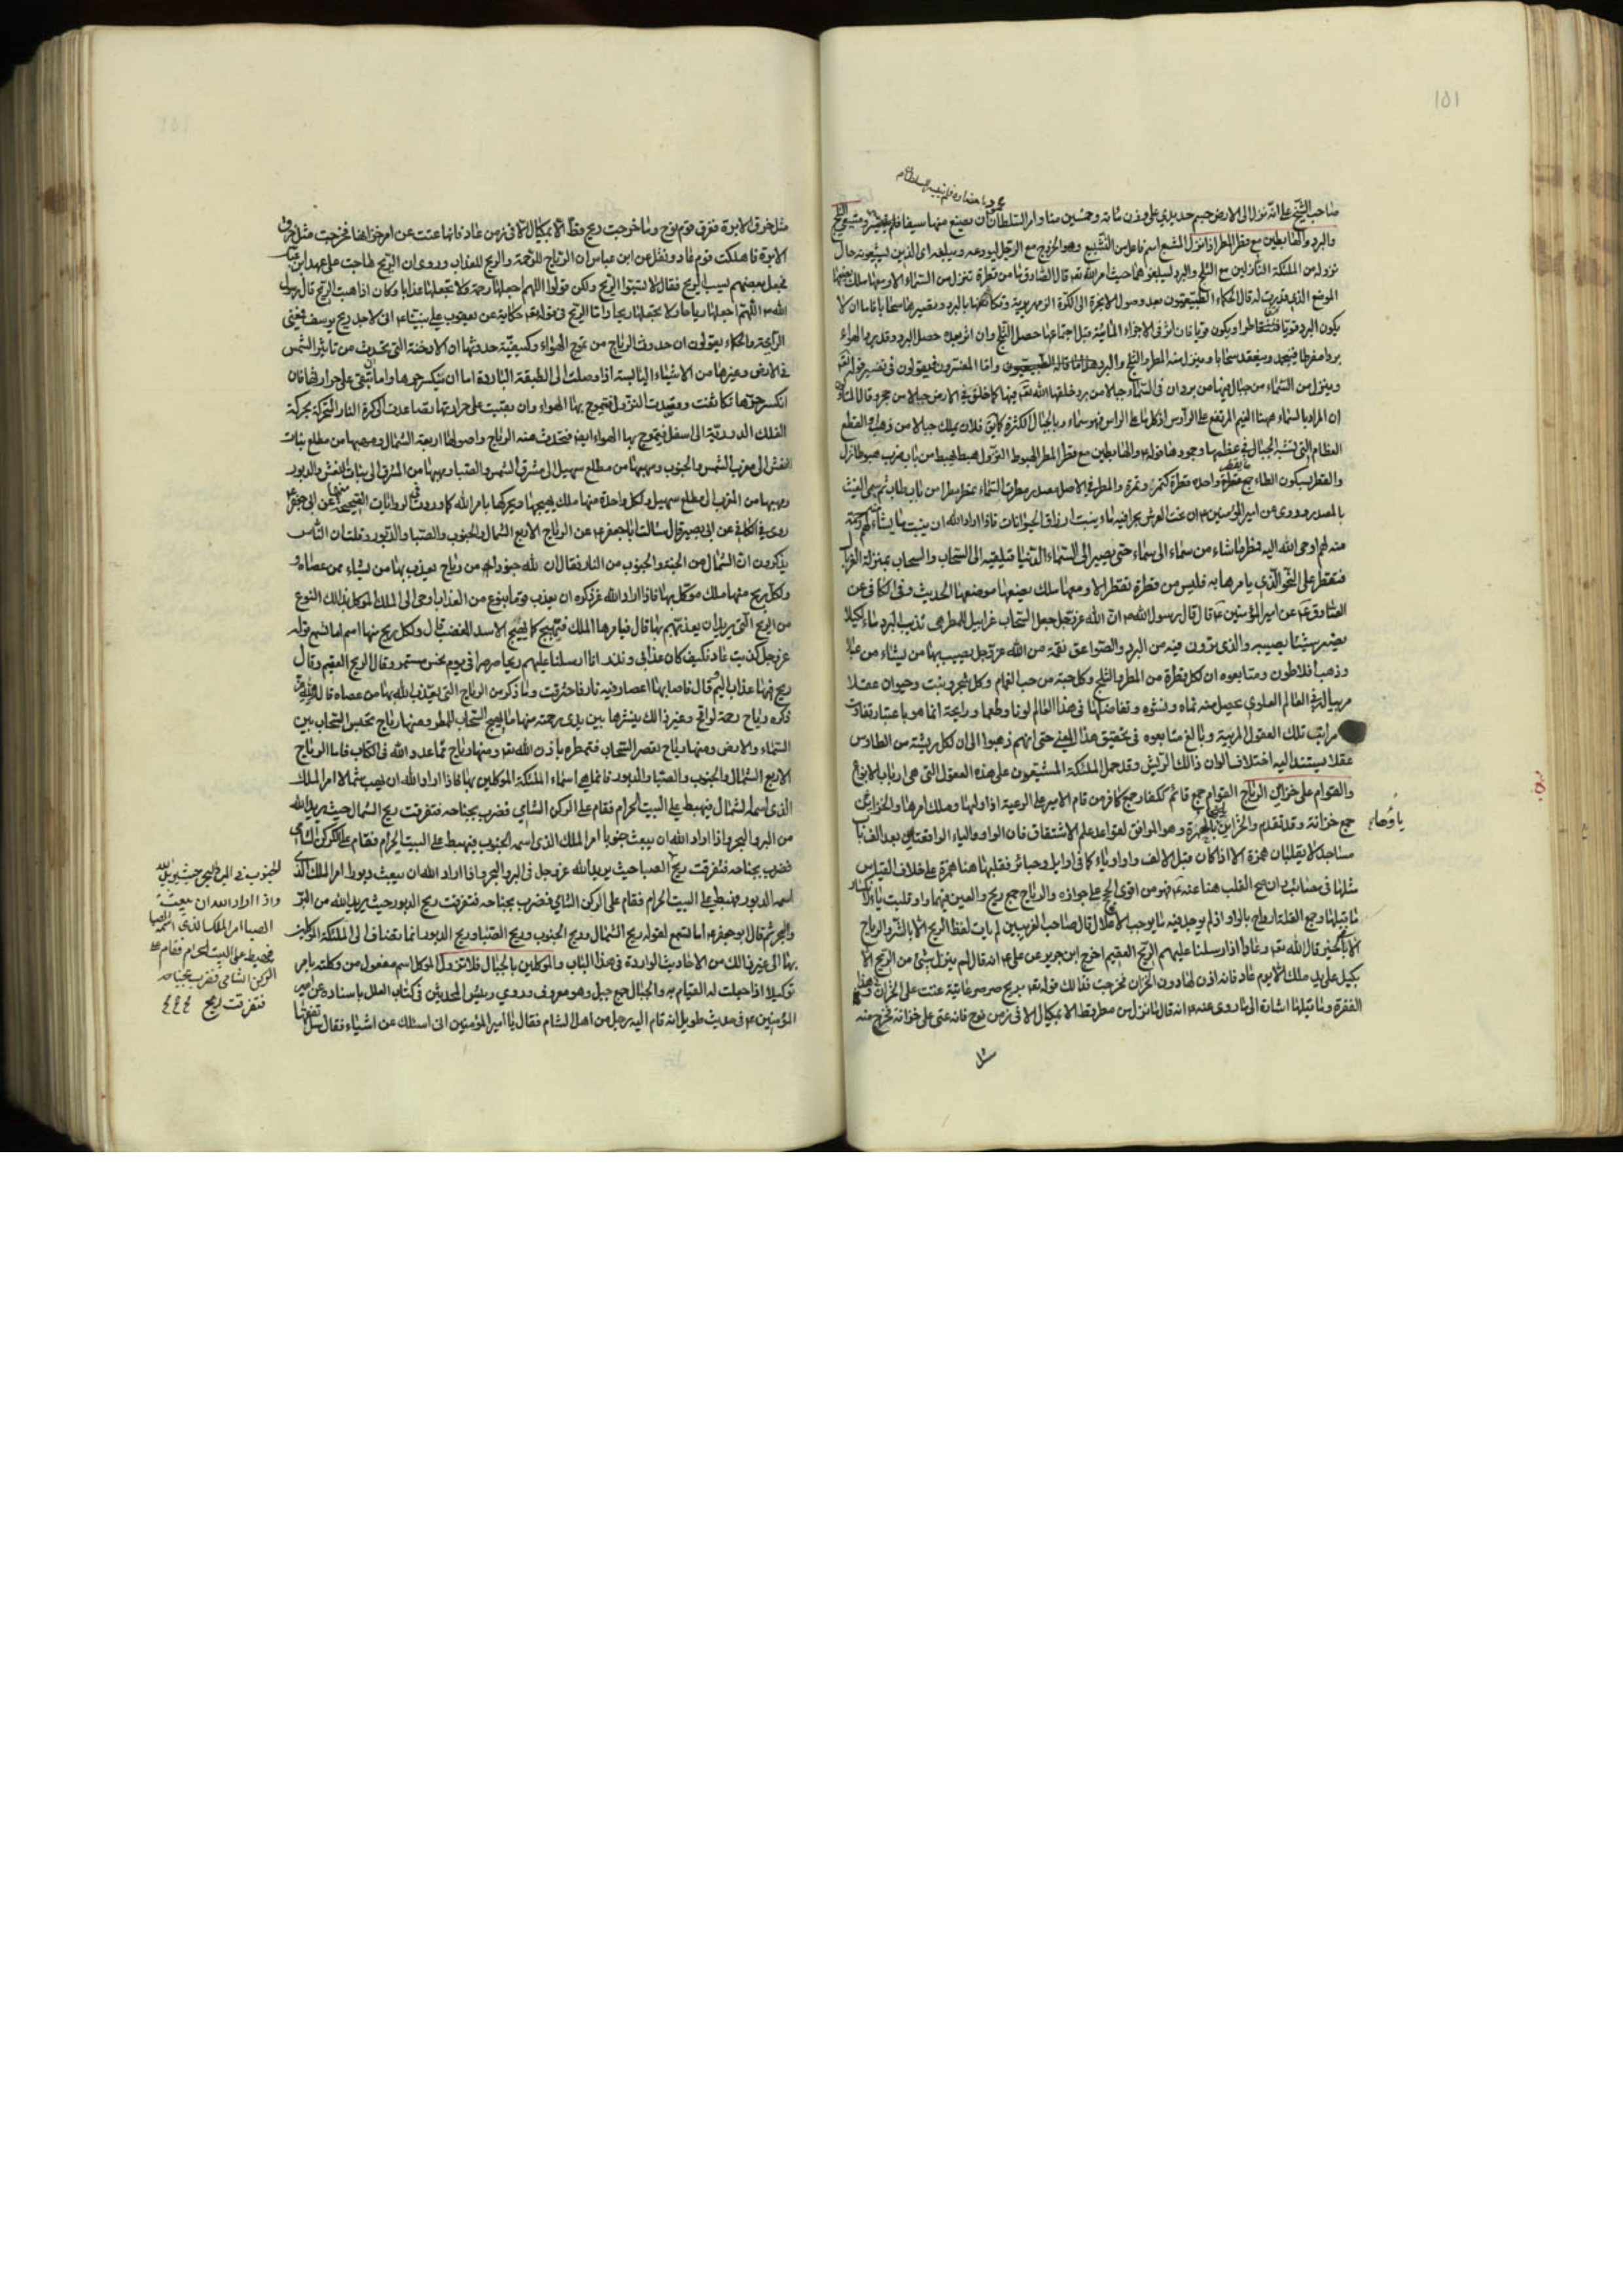 ١٥١
صاحب الشيخ على انه نزل الى الارض جسم حديدي على وزن مائة وخمسين منا وامر السلطان ان يصنع منها سيفا فلم
والبرد والهابطين مع قطر المطر اذا نزل المشيع اسم فاعل من التشييع وهو الخروج مع الرجل ليودعه ويبلغه اى الذين يشيعونه حال
نزوله من الملئكة النازلين مع الثلج والبرد ليبلغوهما حيث امر الله تعه قال الصادق ما من قطرة تنزل من السماء الا ومعها ملك يضعها
الموضع الذى قدرت له قال الحكماء الطبيعيون بعد وصول الابخرة الى الكرة الزمهريرية وتكاثفها بالبرد وتصيرها سحابا فاما ان لا
يكون البرد قويا فتتقاطر او يكون قويا فان اثر فى الاجزاء المائية قبل اجتماعها حصل الثلج وان اثر بعده حصل البرد وقد يبرد الهواء
بردا مفرطا فينجمد وينعقد سحابا وينزل منه المطر والثلج والبرد هذا ما قاله الطبيعيون واما المفسرون فيقولون فى تفسير قوله تعه
وينزل من السماء من جبال فيها من برد ان فى السماء جبالا من برد خلقها الله تعه فيها كما خلق فى الارض جبالا من حجر وقال
ان المراد بالسماء ههنا الغيم المرتفع على الرؤس اذ كل ما علا الراس فهو سماء وبالجبال الكثرة كما يق فلان يملك جبالا من ذهب او القطع
العظام التى تشبه الجبال فى عظمها وجمودها قوله ع والهابطين مع قطر المطر الهبوط النزول هبط يهبط من باب ضرب هبوطا نزل
والقطر بسكون الطاء جمع قطرة واحده قطرة كتمر وتمرة والمطر فى الاصل مصدر مطرت السماء تمطر مطرا من باب طلب ثم سمى الغيث
بالمصدر وروى عن امير المؤمنين ع ان تحت العرش بحرا فيه ماء ينبت ارزاق الحيوانات فاذا اراد الله ان ينبت ما يشاء لهم رحمة
منه لهم اوحى الله اليه فمطر ما شاء من سماء الى سماء حتى يصير الى السماء الدنيا فيلقيه الى السحاب والسحاب بمنزلة الغربال
فتقطر على النحو الذى يامرها به فليس من قطرة تقطر الا ومعها ملك يضعها موضعها الحديث وفى الكافى عن
الصادق ع عن امير المؤمنين ع قال قال رسول الله ص ان الله عز وجل جعل السحاب غرابيل للمطر هى تذيب البرد ماء لكيلا
يضر به شيئا يصيبه والذى ترون فيه من البرد والصواعق نقمة من الله عز وجل يصيب بها من يشاء من عباده
وذهب افلاطون ومتابعوه ان لكل قطرة من المطر والثلج وكل حبة من حب الغمام وكل شجر ونبت وحيوان عقلا
مربيا له فى العالم العلوى يحصل منه نماه ونشوه وتفاضلها فى هذا العالم لونا وطعما ورايحة انما هو باعتبار تفاوت
مراتب تلك العقول المربية وبالغ متابعوه فى تحقيق هذا المعنى حتى انهم ذهبوا الى ان لكل ريشة من الطاوس
عقلا يستند اليه اختلاف الوان ذالك الريش وقد حمل الملئكة المشيعون على هذه العقول التى هى ارباب الانواع
والقوام على خزاين الرياح القوام جمع قائم ككفار جمع كافر من قام الامير على الرعية اذا وليها وملك امرها والخزاين
جمع خزانة وقد تقدم والخزاين بالهمزة وهو الموافق لقواعد علم الاشتقاق فان الواو والياء الواقعتان بعد الف باب
مساجد لا يقلبان همزة الا اذا كان قبل الالف واو او ياء كما فى اوايل وحبائر فقلبها هنا همزة على خلاف القياس
مثلها فى مصائب وان صح القلب هنا عنه ع فهو من اقوى الحجج على جوازه والرياح جمع ريح والعين فيهما واو قلبت ياء
ما قبلها وجمع القلة ارواح بالواو اذ لم يوجد فيه ما يوجب الاعلال قال صاحب الغريبين لم يات لفظ الريح الا بالشر والرياح
الا بالخير قال الله تعه وعاد اذ ارسلنا عليهم الريح العقيم اخرج ابن جرير عن على ع انه قال لم ينزل شئ من الريح الا
بكيل على يد ملك الا يوم عاد فانه اذن لها دون الخزان فخرجت فذالك قوله تعه بريح صرصر عاتية عتت على الخزان وهذه
الفقرة وما قبلها اشارة الى ما روى عنه ع انه قال ما نزل من مطر قط الا بمكيال الا فى زمن نوح فانه عتى على خزانه فخرج منه
مثل
مثل خرق الابرة فغرق قوم نوح وما خرجت ريح قط الا بمكيال الا فى زمن عاد فانها عتت عن امر خزانها فخرجت مثل خرق
الابرة فاهلكت قوم عاد ونقل عن ابن عباس ان الرياح للرحمة والريح للعذاب وروى ان الريح هاجت على عهد ابن عباس
فجعل بعضهم يسب الريح فقال لا تسبوا الريح ولكن قولوا اللهم اجعلها رحمة ولا تجعلها عذابا وكان اذا هبت الريح قال رسول
الله ص اللهم اجعلها رياحا ولا تجعلها ريحا واما الريح فى قوله تعه حكاية عن يعقوب على نبينا وع انى لاجد ريح يوسف فبمعنى
الرايحة والحكماء يقولون ان حدوث الرياح من تموج الهواء وكيفية حدوثها ان الادخنة التى تحدث من تاثير الشمس
فى الارض وغيرها من الاشياء اليابسة اذا وصلت الى الطبقة الباردة اما ان ينكسر حرها واما ان تبقى على حرارتها فان
انكسر حرها تكاثفت وقصدت النزول فتموج بها الهواء وان بقيت على حرارتها تصاعدت الى كرة النار المتحركة بحركة
الفلك الدورية الى اسفل فيتموج بها الهواء ايض فتحدث منه الرياح واصولها اربعة الشمال ومهبها من مطلع بنات
النعش الى مغرب الشمس والجنوب ومهبها من مطلع سهيل الى مشرق الشمس والصبا ومهبها من المشرق الى بنات النعش والدبور
ومهبها من المغرب الى مطلع سهيل ولكل واحدة منها ملك يهيجها ويحركها بامر الله كما وردت فى الروايات الصحيحة منها عن ابى جعفر ع
روى فى الكافى عن ابى بصير قال سالت ابا جعفر ع عن الرياح الاربع الشمال والجنوب والصبا والدبور وقلت ان الناس
يذكرون ان الشمال من الجنة والجنوب من النار فقال ان لله جنودا من رياح يعذب بها من يشاء ممن عصاه
ولكل ريح منها ملك موكل بها فاذا اراد الله عز ذكره ان يعذب قوما بنوع من العذاب اوحى الى الملك الموكل بذالك النوع
من الريح التى يريد ان يعذبهم بها قال فيامرها الملك فتهيج كما يهيج الاسد المغضب قال ولكل ريح منها اسم اما تسمع قوله
عز وجل كذبت عاد فكيف كان عذابى ونذر انا ارسلنا عليهم ريحا صرصرا فى يوم نحس مستمر وقال الريح العقيم وقال
ريح فيها عذاب اليم قال فاصابها اعصار فيه نار فاحترقت وما ذكر من الرياح التى يعذب الله بها من عصاه قال
ذكره رياح رحمة لواقح وغير ذالك ينشرها بين يدى رحمته منها ما يهيج السحاب للمطر ومنها رياح تحبس السحاب بين
السماء والارض ومنها رياح تعصر السحاب فتمطره باذن الله تعه ومنها رياح مما عدد الله فى الكتاب فاما الرياح
الاربع الشمال والجنوب والصبا والدبور فانما هى اسماء الملئكة الموكلين بها فاذا اراد الله ان يهب شمالا امر الملك
الذى اسمه الشمال فيهبط على البيت الحرام فقام على الركن الشامى فضرب بجناحه فتفرقت ريح الشمال حيث يريد الله
من البر والبحر واذا اراد الله ان يبعث جنوبا امر الملك الذى اسمه الجنوب فيهبط على البيت الحرام فقام على الركن الشامى
فضرب بجناحه فتفرقت ريح الصبا حيث يريد الله عز وجل فى البر والبحر واذا اراد الله ان يبعث دبورا امر الملك الذى
اسمه الدبور فهبط على البيت الحرام فقام على الركن الشامى فضرب بجناحه فتفرقت ريح الدبور حيث يريد الله من البر
والبحر ثم قال ابو جعفر ع اما تسمع لقوله ريح الشمال وريح الجنوب وريح الصبا وريح الدبور انما تضاف الى الملئكة الموكلين
بها الى غير ذالك من الاحاديث الواردة فى هذا الباب والموكلين بالجبال فلا تزول الموكل اسم مفعول من وكلته بامر
توكيلا اذا جعلت له القيام به والجبال جمع جبل وهو معروف وروى رئيس المحدثين فى كتاب العلل باسناده عن امير
المؤمنين ع فى حديث طويل انه قام اليه رجل من اهل الشام فقال يا امير المؤمنين انى اسئلك عن اشياء فقال سل تفقها
الجنوب فى البر والبحر حيث يريد الله
واذا اراد الله ان يبعث
الصبا امر الملك الذى اسمه الصبا
فهبط على البيت الحرام فقام على
الركن الشامى فضرب بجناحه
فتفرقت ريح